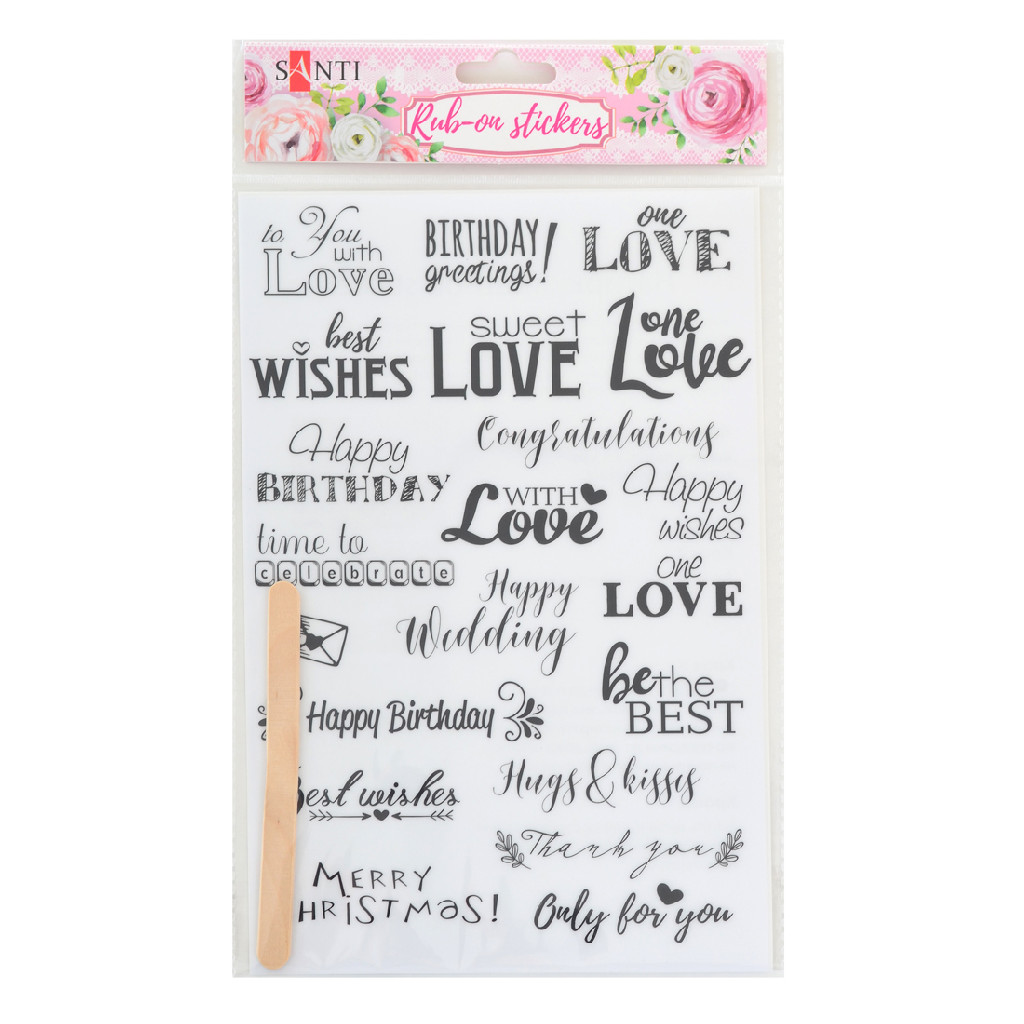 SANTI
Rub-on stickers
to You
with
Love
BIRTHDAY
greetings!
one
LOVE
best
WISHES
sweet
LOVE
one
Love
Happy
BIRTHDAY
Congratulations
WITH
Love
Happy
wishes
time to
celebrate
Happy
Wedding
one
LOVE
be the
BEST
Happy Birthday
Hugs & kisses
Best wishes
Thank you
MERRY
HRISTMAS!
Only for you